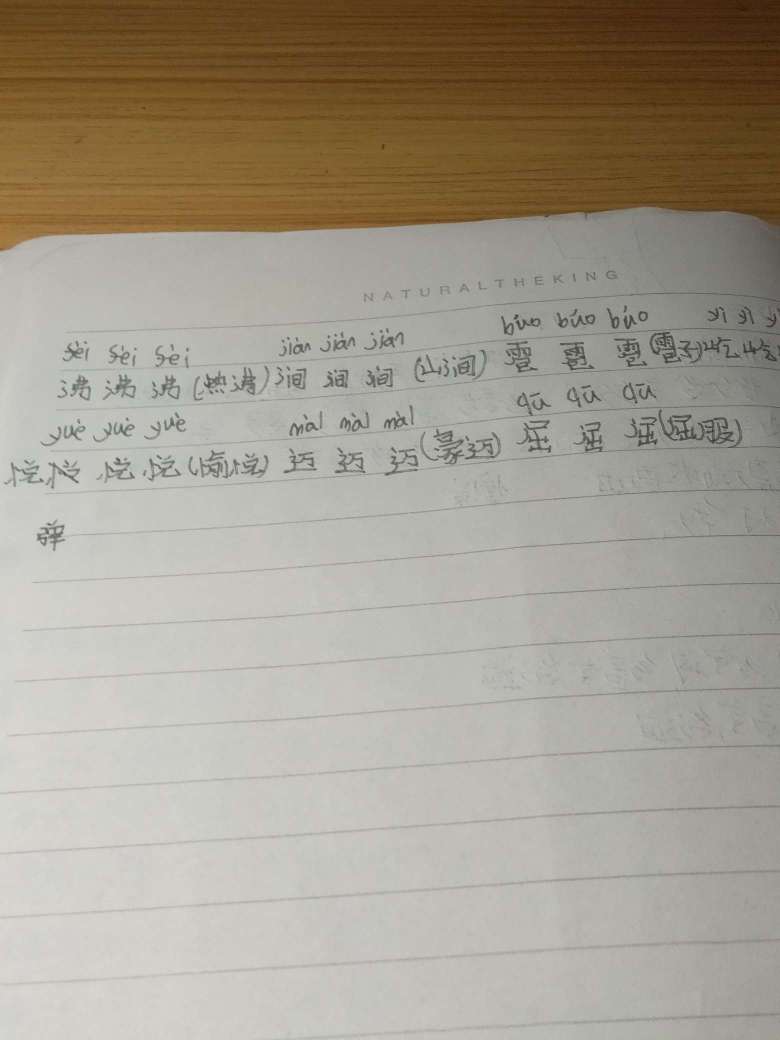 NATURALTHEKING
fèi fèi fèi jiàn jiàn jiàn báo báo báo yì yì
沸 沸 沸 (热沸) 涧 涧 涧 (山涧) 雹 雹 雹 (雹子) 屹 屹
yuè yuè yuè mài mài mài qū qū qū
悦 悦 悦 悦 (愉悦) 迈 迈 迈 (豪迈) 屈 屈 屈 (屈服)
弹